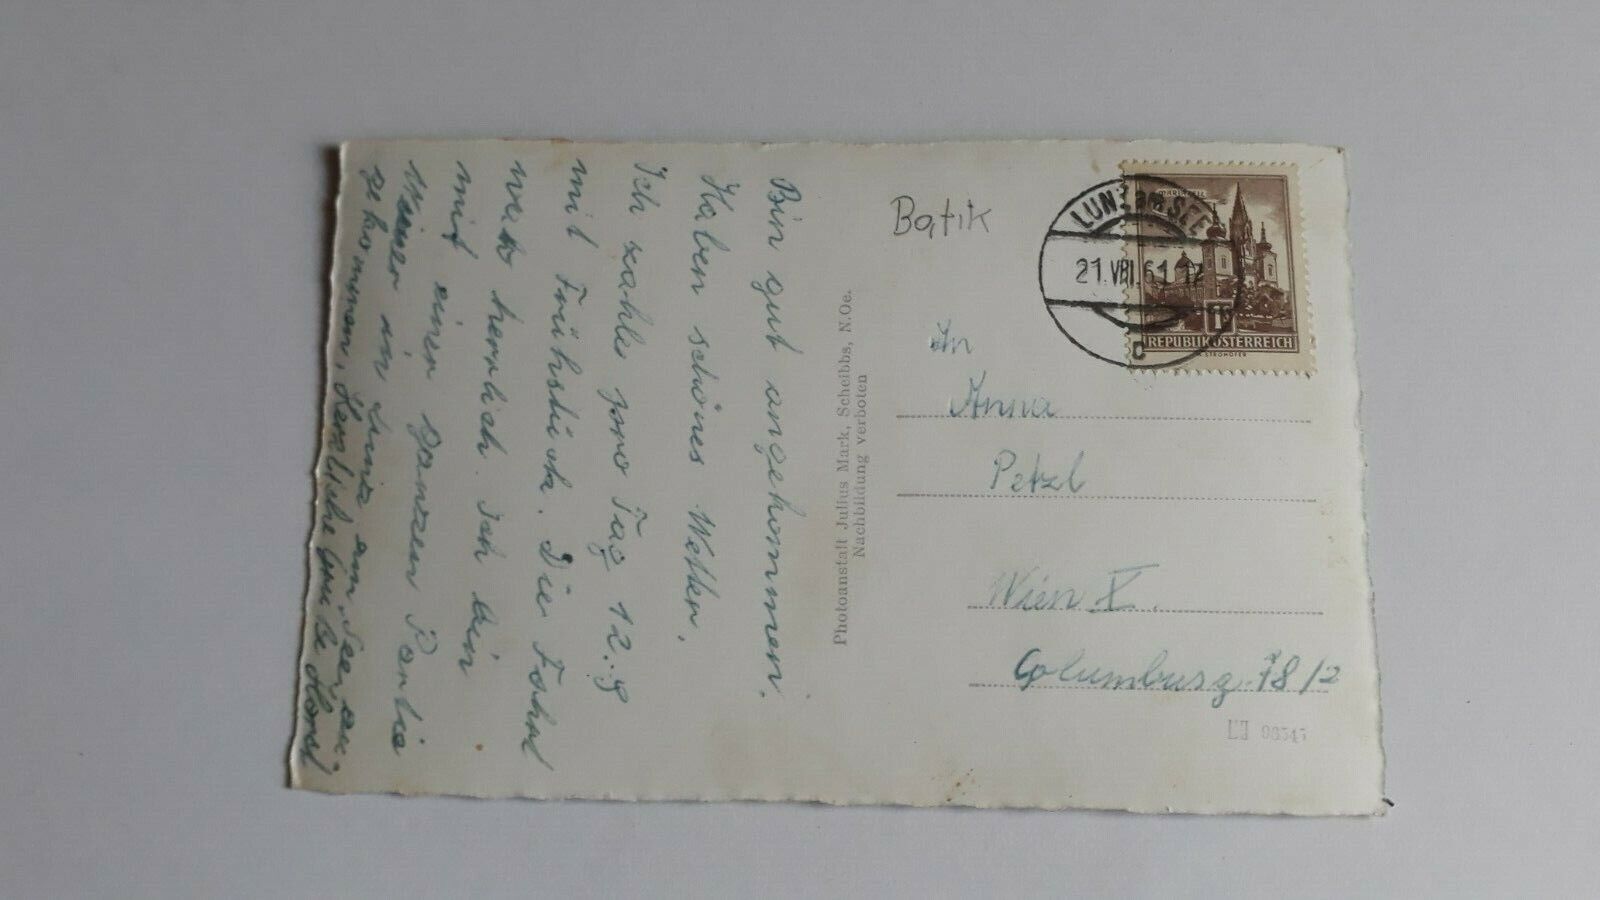 Bin gut angekommen.
Haben schönes Wetter.
Ich zahle pro Tag 12.-S
mit Frühstück. Die Fahrt
war herrlich. Ich bin
mit einer ganzen Partie
Wiener in Lunz am See an-
gekommen. Herzliche Grüße Horst
Photoanstalt Julius Mark, Scheibbs, N.Oe.
Nachbildung verboten
Batik
LUNZ am SEE
21.VIII.61 17
c
MARIAZELL
1S
REPUBLIK ÖSTERREICH
STROHOFER
An
Anna
Petzl
Wien X.
Columbusg. 78/2
LJ 96545